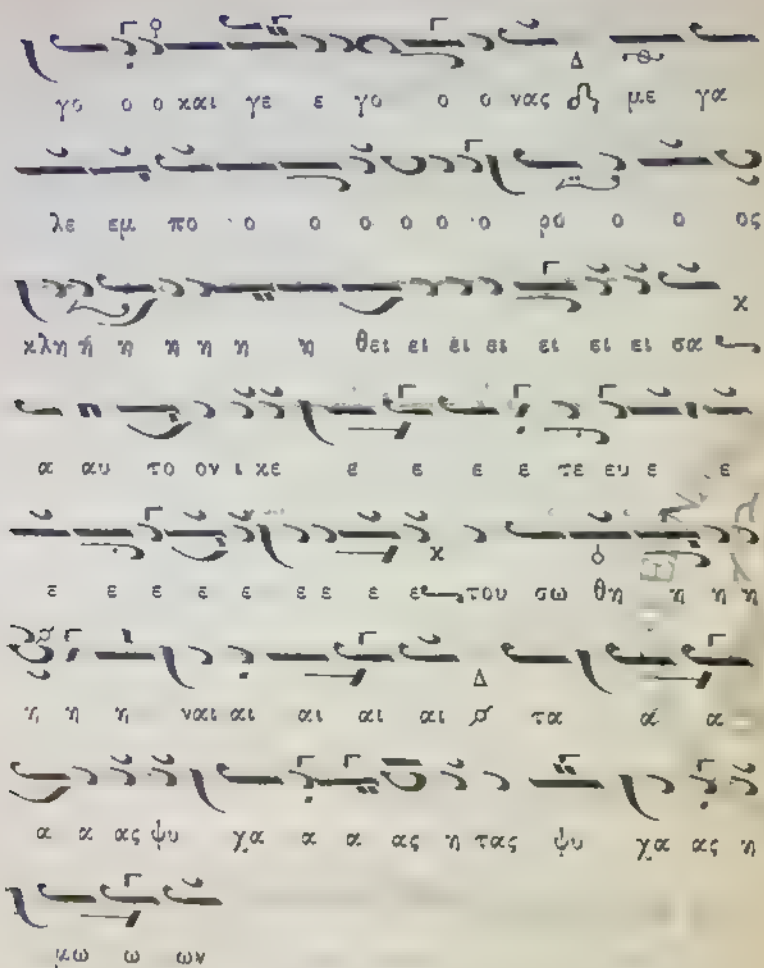 γο ο ο και γε ε γο ο ο νας Δ με γα
λε εμ πο ο ο ο ο ο ο ρο ο ο ος
κλη η η η η η η θει ει ει ει ει ει ει σα χ
α αυ το ον ι κε ε ε ε ε τε ευ ε ε
ε ε ε ε ε ε ε ε ε χ του σω θη η η η
η η η ναι αι αι αι αι Δ τα α α
α α ας ψυ χα α α ας η τας ψυ χα ας η
μω ω ων